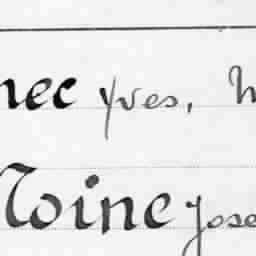 nec yves,
Moine Jose